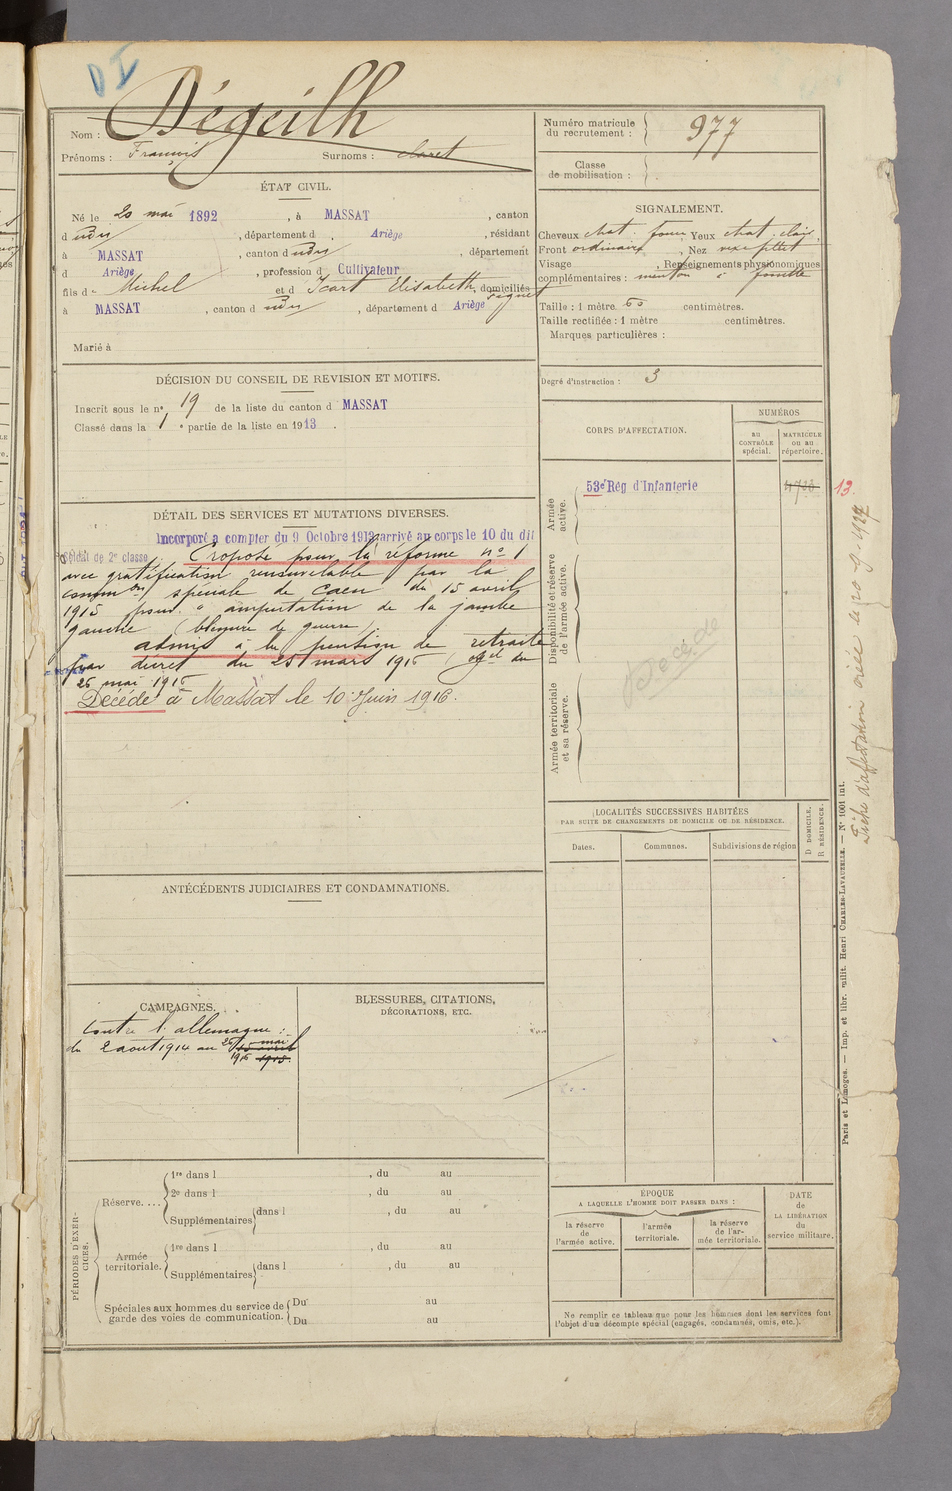 D I
Nom : Dégeilh
Prénoms : François Surnoms : claret
ÉTAT CIVIL.
Né le 20 mai 1892 , à MASSAT , canton
d udu , département d Ariège , résidant
à MASSAT , canton d udu , département
d Ariège , profession d Cultivateur
fils de Michel et d Icart Elisabeth , domiciliés
à MASSAT , canton d udu , département d Ariège
Marié à
DÉCISION DU CONSEIL DE REVISION ET MOTIFS.
Inscrit sous le n° 19 de la liste du canton d MASSAT
Classé dans la 1 e partie de la liste en 1913 .
DÉTAIL DES SERVICES ET MUTATIONS DIVERSES.
Incorporé a compter du 9 Octobre 1913 arrivé au corps le 10 du dit
Soldat de 2e classe. Proposé pour la réforme n° 1
avec gratification renouvelable par la
comm on spéciale de Caen du 15 avril
1915 pour " amputation de la jambe
gauche (blessure de guerre)
admis à la pension de retraite
par décret du 25 mars 1916 du
26 mai 1916
Décédé à Massat le 10 Juin 1916.
ANTÉCÉDENTS JUDICIAIRES ET CONDAMNATIONS.
CAMPAGNES.
Contre l'allemagne :
du 2 aout 1914 au 26 mai 15 avril
1916 1915.
BLESSURES, CITATIONS,
DÉCORATIONS, ETC.
PÉRIODES D'EXERCICES.
Réserve....
1re dans l , du au
2e dans l , du au
Supplémentaires dans l , du au
Armée territoriale.
1re dans l , du au
Supplémentaires dans l , du au
Spéciales aux hommes du service de garde des voies de communication.
Du au
Du au
Numéro matricule du recrutement : 977
Classe de mobilisation :
SIGNALEMENT.
Cheveux chat. foncé Yeux chat. clair
Front ordinaire , Nez vexe petit
Visage , Renseignements physionomiques
complémentaires : menton à fossette
Taille : 1 mètre 60 centimètres.
Taille rectifiée : 1 mètre centimètres.
Marques particulières :
Degré d'instruction : 3
CORPS D'AFFECTATION.
NUMÉROS
au CONTRÔLE spécial.
MATRICULE ou au répertoire.
Armée active.
53e Rég d'Infanterie 4723 13.
Disponibilité et réserve de l'armée active.
Décédé
Armée territoriale et sa réserve.
LOCALITÉS SUCCESSIVES HABITÉES
PAR SUITE DE CHANGEMENTS DE DOMICILE OU DE RÉSIDENCE.
Dates.
Communes.
Subdivisions de région
D DOMICILE.
R RÉSIDENCE.
ÉPOQUE
A LAQUELLE L'HOMME DOIT PASSER DANS :
la réserve de l'armée active.
l'armée territoriale.
la réserve de l'armée territoriale.
DATE de LA LIBÉRATION du service militaire.
Ne remplir ce tableau que pour les hommes dont les services font
l'objet d'un décompte spécial (engagés, condamnés, omis, etc.).
Paris et Limoges. — Imp. et libr. milit. Henri CHARLES-LAVAUZELLE. — N° 1001 int.
Fiche d'affectation créée le 20 9 - 1927